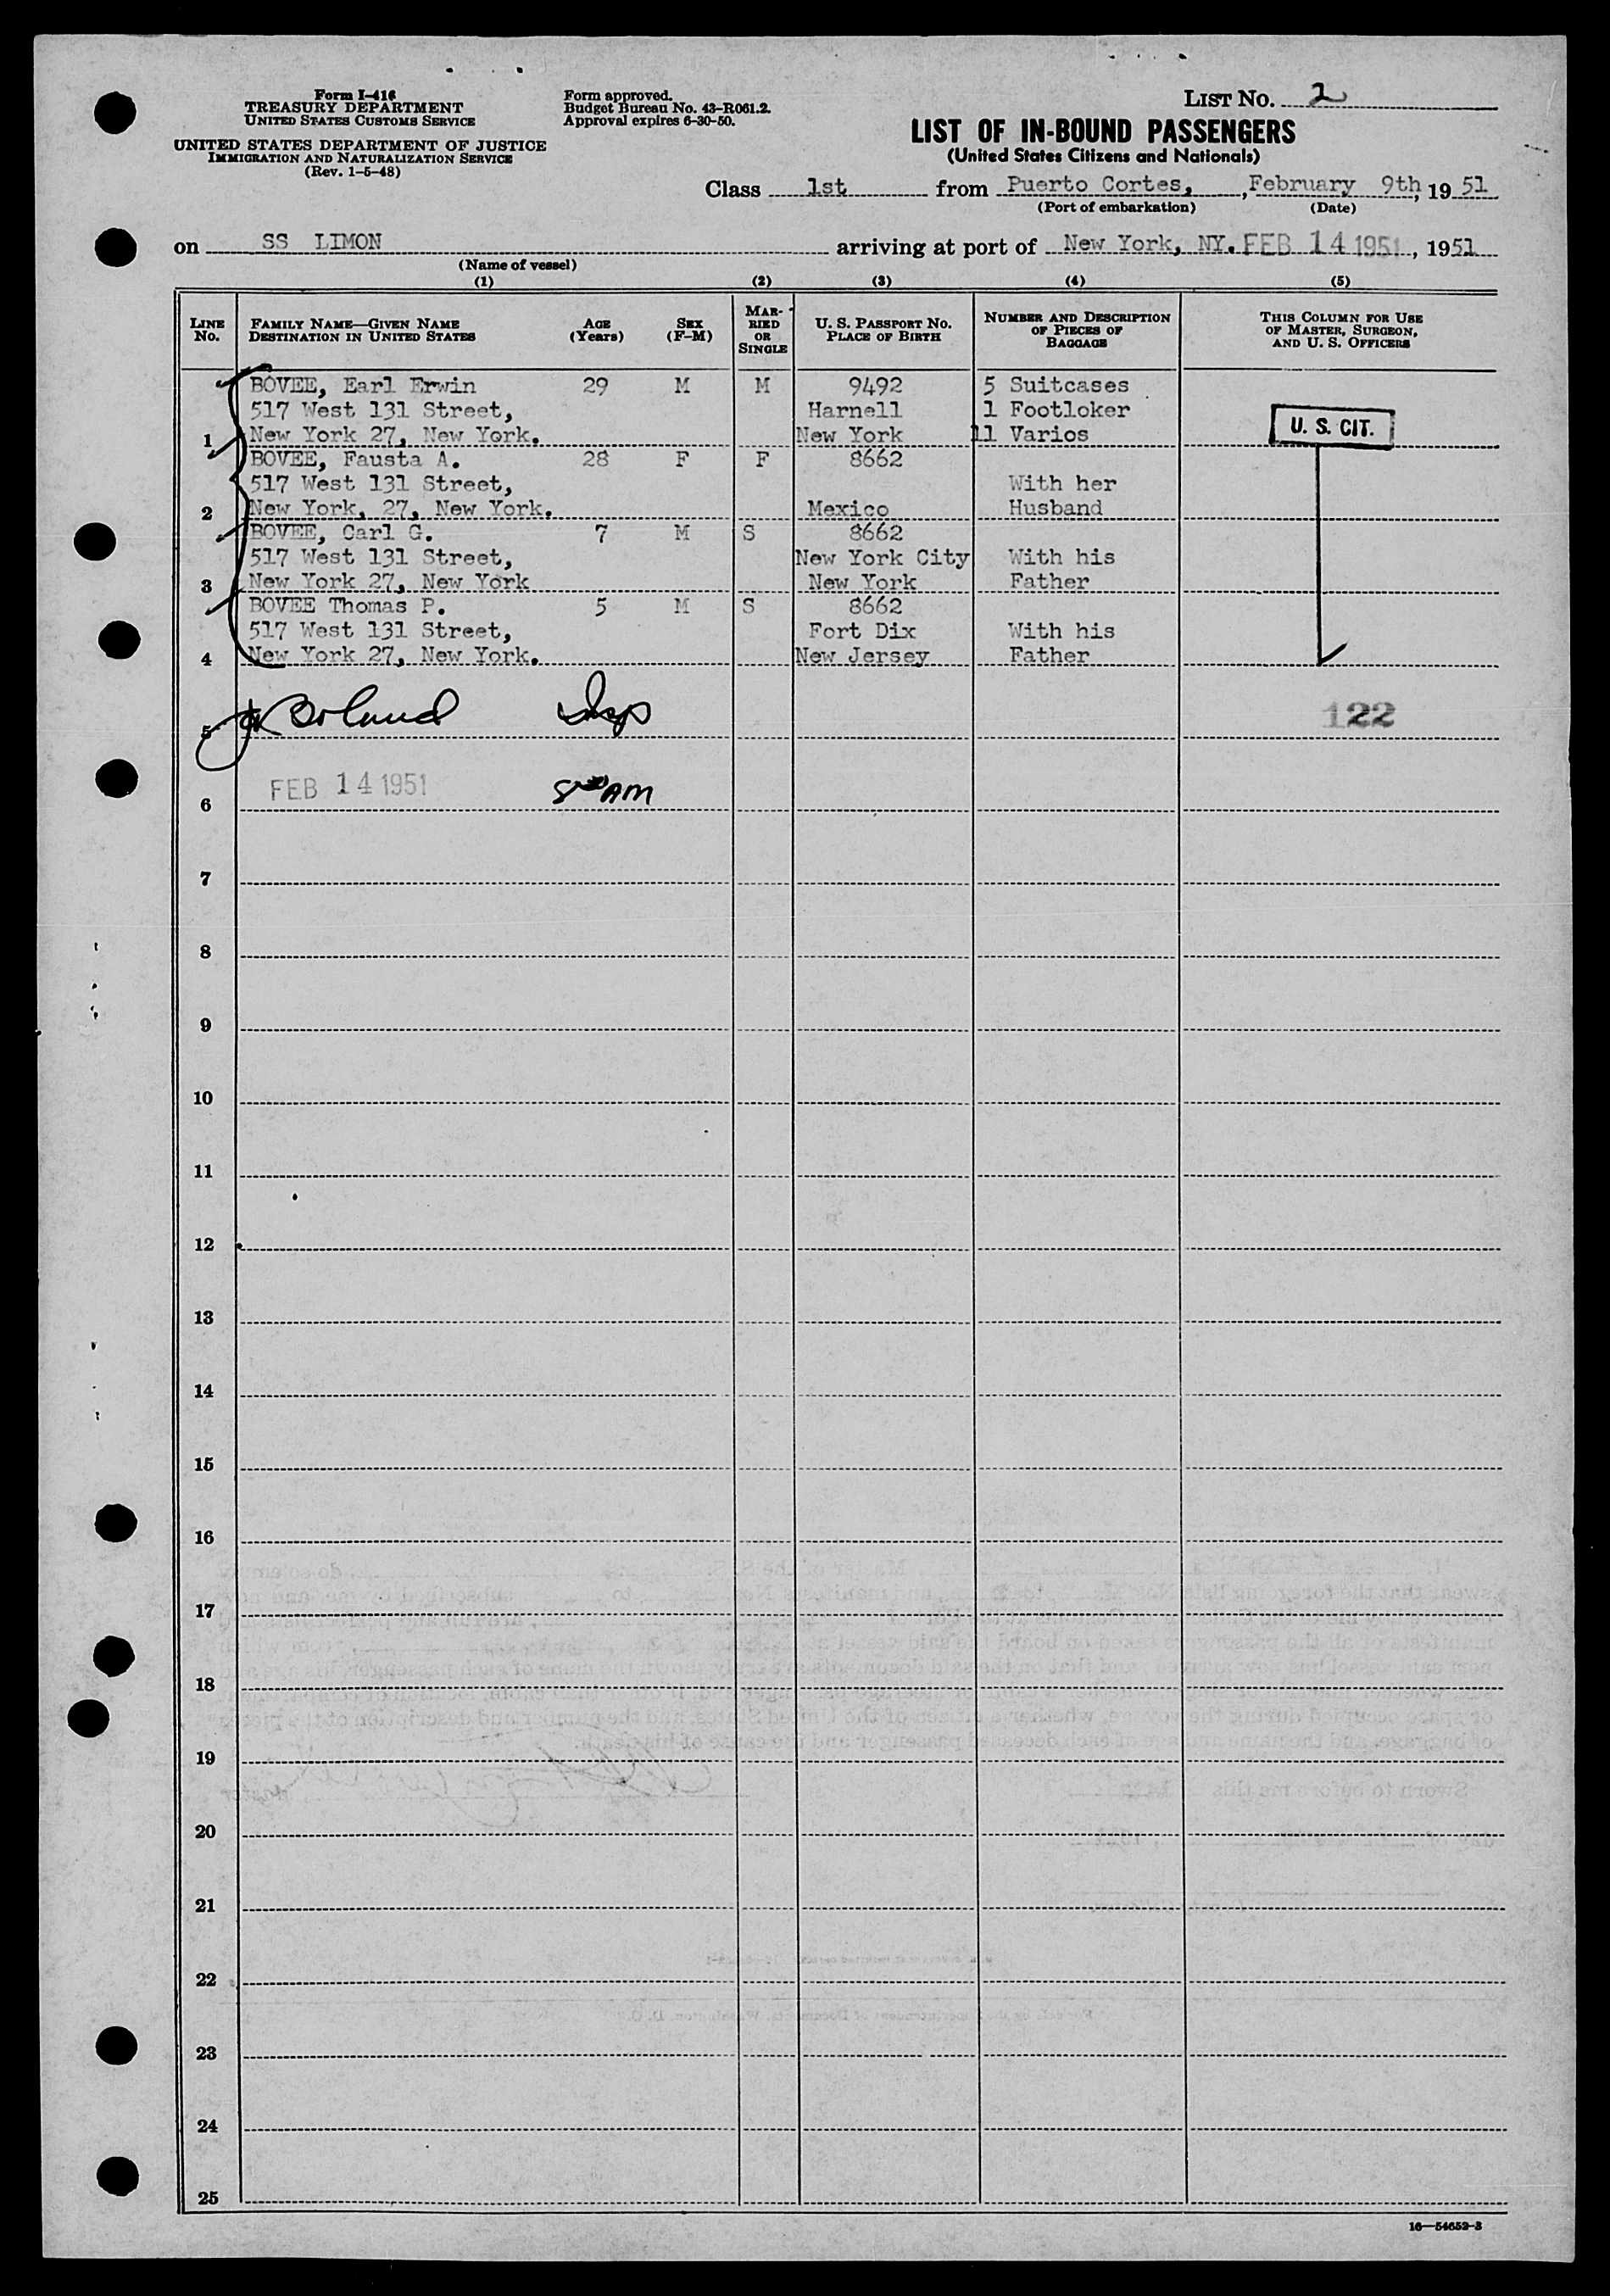 Form I-416
TREASURY DEPARTMENT
UNITED STATES CUSTOMS SERVICE
UNITED STATES DEPARTMENT OF JUSTICE
IMMIGRATION AND NATURALIZATION SERVICE
(Rev. 1-5-48)
Form approved.
Budget Bureau No. 43-R061.2.
Approval expires 6-30-50.
LIST No. 2
LIST OF IN-BOUND PASSENGERS
(United States Citizens and Nationals)
Class 1st from Puerto Cortes, , February 9th, 19 51
(Port of embarkation) (Date)
on SS LIMON arriving at port of New York, NY. FEB 14 1951, 1951
(Name of vessel)
(1) (2) (3) (4) (5)
LINE No. FAMILY NAME—GIVEN NAME DESTINATION IN UNITED STATES AGE (Years) SEX (F-M) MARRIED OR SINGLE U. S. PASSPORT NO. PLACE OF BIRTH NUMBER AND DESCRIPTION OF PIECES OF BAGGAGE THIS COLUMN FOR USE OF MASTER, SURGEON, AND U. S. OFFICERS
BOVEE, Earl Erwin 29 M M 9492 5 Suitcases
517 West 131 Street, Harnell 1 Footloker
1 New York 27, New York. New York 11 Varios U. S. CIT.
BOVEE, Fausta A. 28 F F 8662
517 West 131 Street, With her
2 New York, 27, New York. Mexico Husband
BOVEE, Carl G. 7 M S 8662
517 West 131 Street, New York City With his
3 New York 27, New York New York Father
BOVEE Thomas P. 5 M S 8662
517 West 131 Street, Fort Dix With his
4 New York 27, New York. New Jersey Father
5 Boland Insp 122
6 FEB 14 1951 8 AM
7
8
9
10
11
12
13
14
15
16
17
18
19
20
21
22
23
24
25
16—54652-3